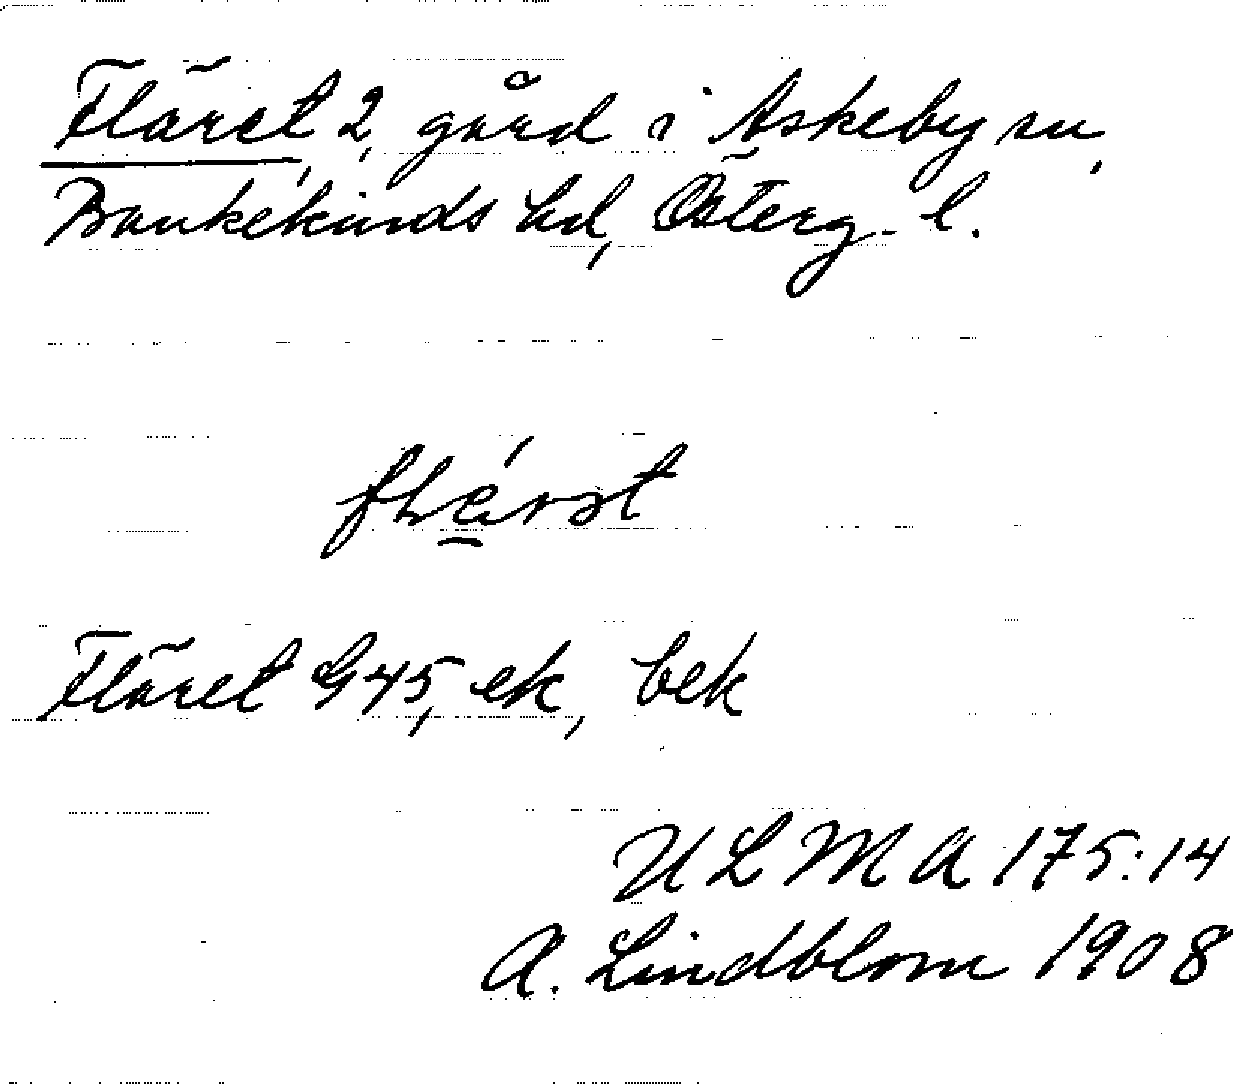 Fläret 2, gård i Askeby sn,
Bankekinds hd, Österg. l.
Fläret G 45, ek, bek
ULMA 175:14
A. Lindblom 1908